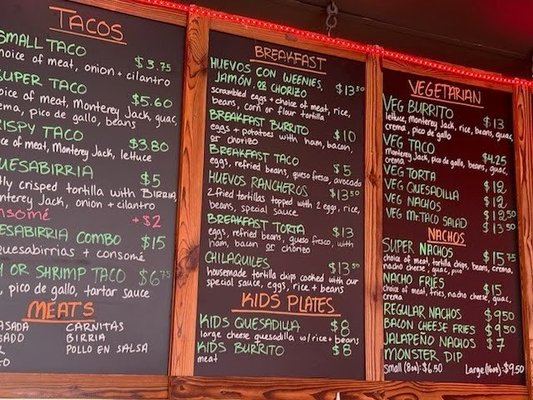 TACOS
SMALL TACO $3.75
choice of meat, onion + cilantro
SUPER TACO $5.60
choice of meat, Monterey Jack, guac,
crema, pico de gallo, beans
CRISPY TACO $3.80
of meat, Monterey Jack, lettuce
QUESABIRRIA $5
crisped tortilla with BIRRIA
Monterey Jack, onion + cilantro
+ $2
QUESABIRRIA COMBO $15
quesabirrias + consomé
OR SHRIMP TACO $6
, pico de gallo, tartar sauce
MEATS
CARNITAS
BIRRIA
POLLO EN SALSA
BREAKFAST
HUEVOS CON WEENIES,
JAMÓN, OR CHORIZO $13.50
scrambled eggs + choice of meat, rice,
beans, corn or flour tortilla
BREAKFAST BURRITO $10
eggs + potatoes with ham, bacon,
or chorizo
BREAKFAST TACO $5
eggs, refried beans, queso fresco, avocado
HUEVOS RANCHEROS $13.50
2 fried tortillas topped with 2 eggs, rice,
beans, special sauce
BREAKFAST TORTA $13
eggs, refried beans, queso fresco, with
ham, bacon or chorizo
CHILAQUILES $13.50
housemade tortilla chips cooked with our
special sauce, eggs, rice + beans
KIDS PLATES
KIDS QUESADILLA $8
large cheese quesadilla w/rice + beans
KIDS BURRITO $8
meat
VEGETARIAN
VEG BURRITO $13
lettuce, Monterey Jack, rice, beans, guac,
crema, pico de gallo
VEG TACO $4.25
Monterey Jack, pico de gallo, beans, guac,
crema
VEG TORTA $12
VEG QUESADILLA $12
VEG NACHOS $12.50
VEG MI-TACO SALAD $13.50
NACHOS
SUPER NACHOS $15.75
choice of meat, tortilla chips, beans, crema,
nacho cheese, guac,
NACHO FRIES $15
choice of meat, fries, nacho cheese, guac,
crema
REGULAR NACHOS $9.50
BACON CHEESE FRIES $9.50
JALAPEÑO NACHOS $7
MONSTER DIP
small (8oz) $6.50 Large (16oz) $9.50